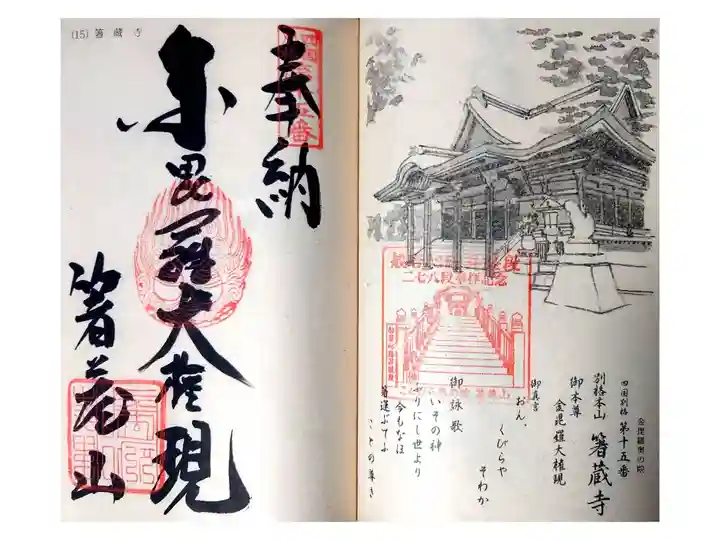 金毘羅奥の院
四国別格 第十五番
別格本山 箸蔵寺
御本尊
金毘羅大権現
御真言
おん、
くびらや
そわか
御詠歌
いその神
ふりにし世より
今もなほ
箸運ぶてふ
ことの尊き
二七八段奉拝記念
奉納
金毘羅大権現
箸蔵山
(15) 箸蔵寺